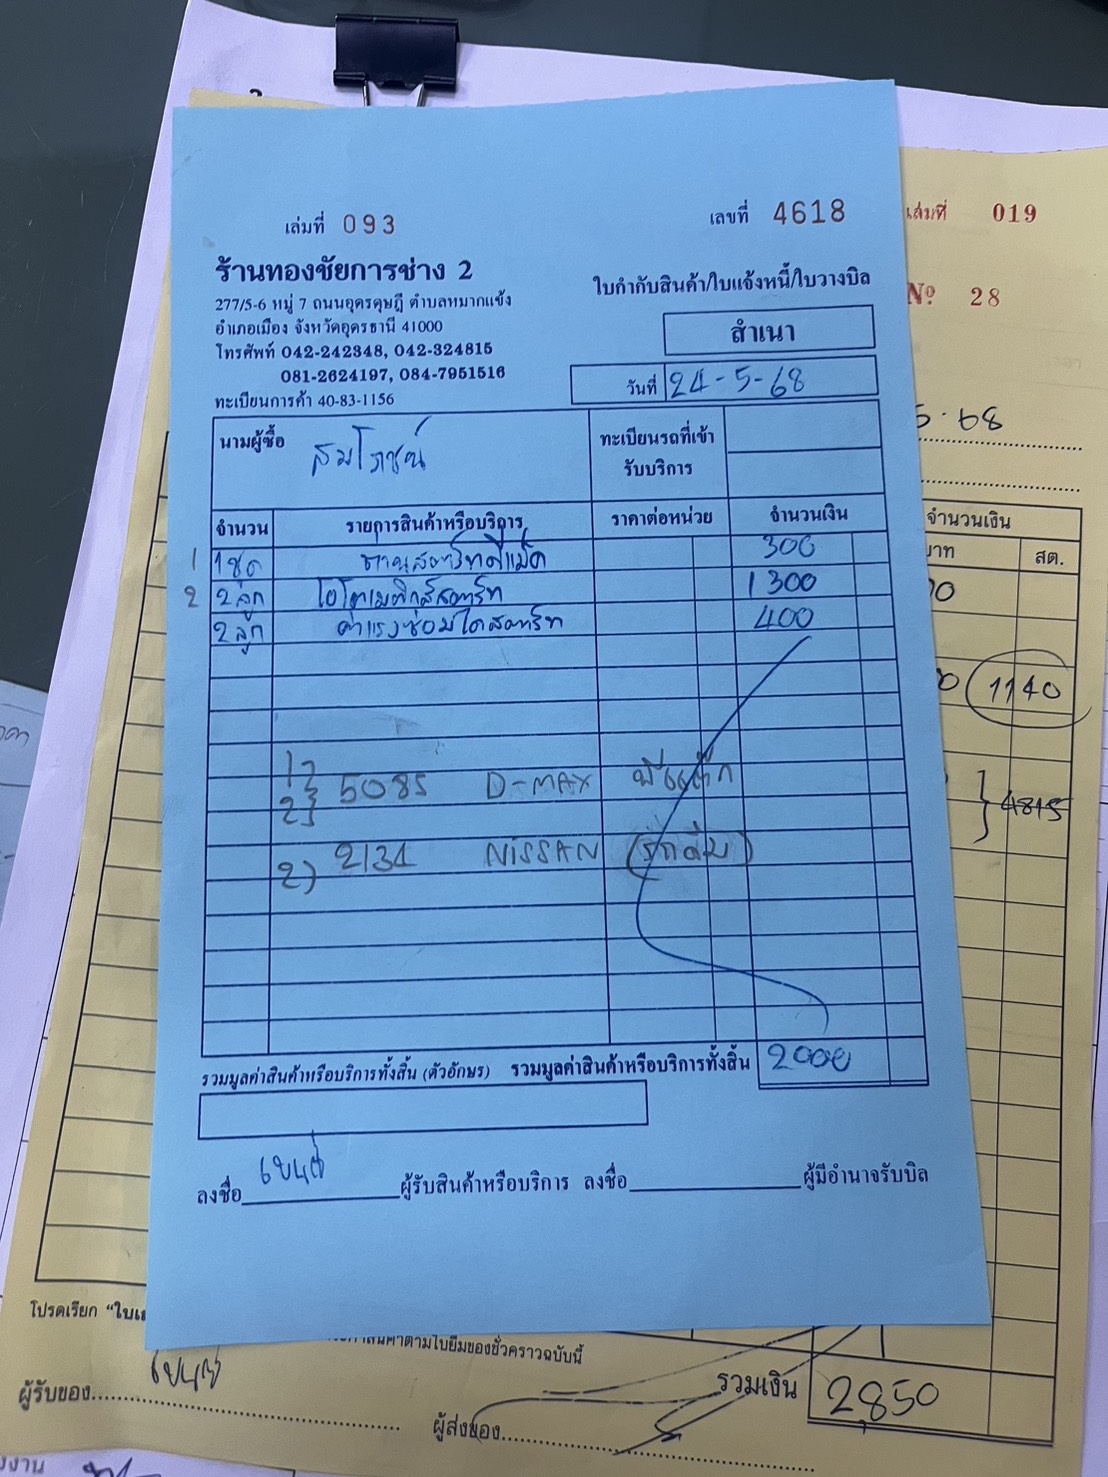 เล่มที่ 093
เลขที่ 4618
ร้านทองชัยการช่าง 2
277/5-6 หมู่ 7 ถนนอุดรดุษฎี ตำบลหมากแข้ง
อำเภอเมือง จังหวัดอุดรธานี 41000
โทรศัพท์ 042-242348, 042-324815
081-2624197, 084-7951516
ทะเบียนการค้า 40-83-1156
ใบกำกับสินค้า/ใบแจ้งหนี้/ใบวางบิล
สำเนา
วันที่ 24-5-68
นามผู้ซื้อ สมโภชน์
ทะเบียนรถที่เข้ารับบริการ
จำนวน รายการสินค้าหรือบริการ ราคาต่อหน่วย จำนวนเงิน
1 1ชุด ถ่านสตาร์ทดีแม็ค 300
2 2ลูก ไอโตเมติกส์สตาร์ท 1300
2ลูก ค่าแรงซ่อมไดสตาร์ท 400
1)
2) 5085 D-MAX
2) 2134 NISSAN
รวมมูลค่าสินค้าหรือบริการทั้งสิ้น (ตัวอักษร) รวมมูลค่าสินค้าหรือบริการทั้งสิ้น 2000
ลงชื่อ ผู้รับสินค้าหรือบริการ ลงชื่อ ผู้มีอำนาจรับบิล
เล่มที่ 019
Nº 28
5-68
จำนวนเงิน
บาท สต.
1140
4815
โปรดเรียก
ตามใบยืมของชั่วคราวฉบับนี้
รวมเงิน 2,850
ผู้รับของ
ผู้ส่งของ